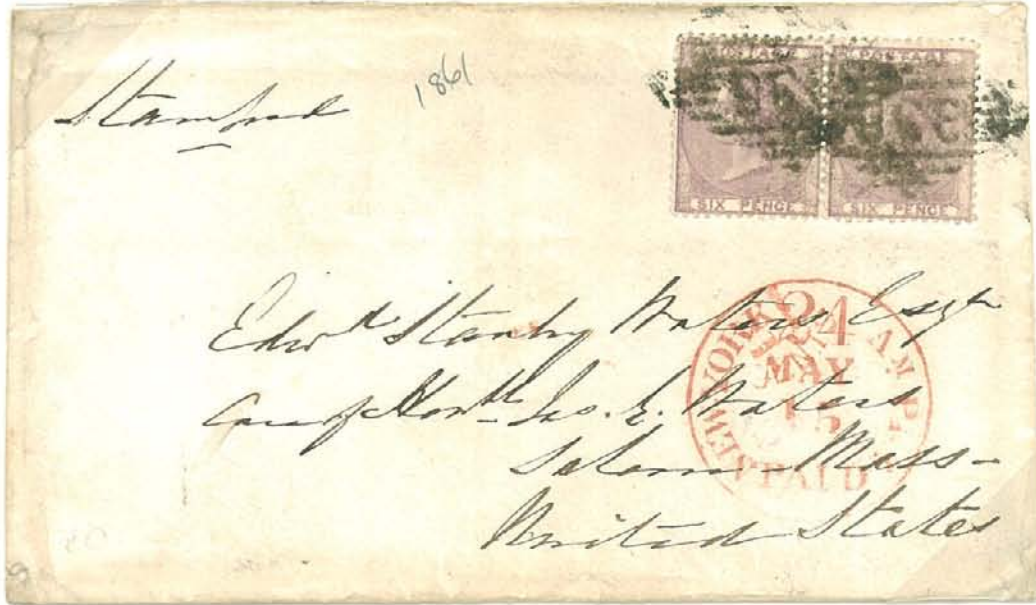 Stamped
1861
POSTAGE POSTAGE
SIX PENCE SIX PENCE
Edwd Stanley Waters Esqr
Care of Honble Jos. G. Waters
Salem Mass-
United States
NEW YORK AM. PKT.
24
MAY
15
PAID